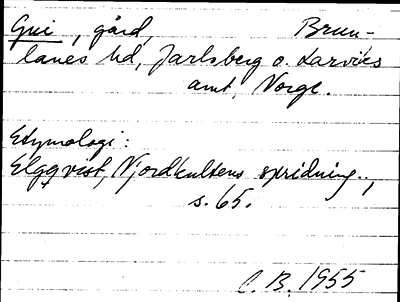 Gui, gård, Brun-
lanes hd, Jarlsberg o. Larviks
amt, Norge.
Etymologi:
Elgqvist, Njordkultens spridning.,
s. 65.
C. B. 1955